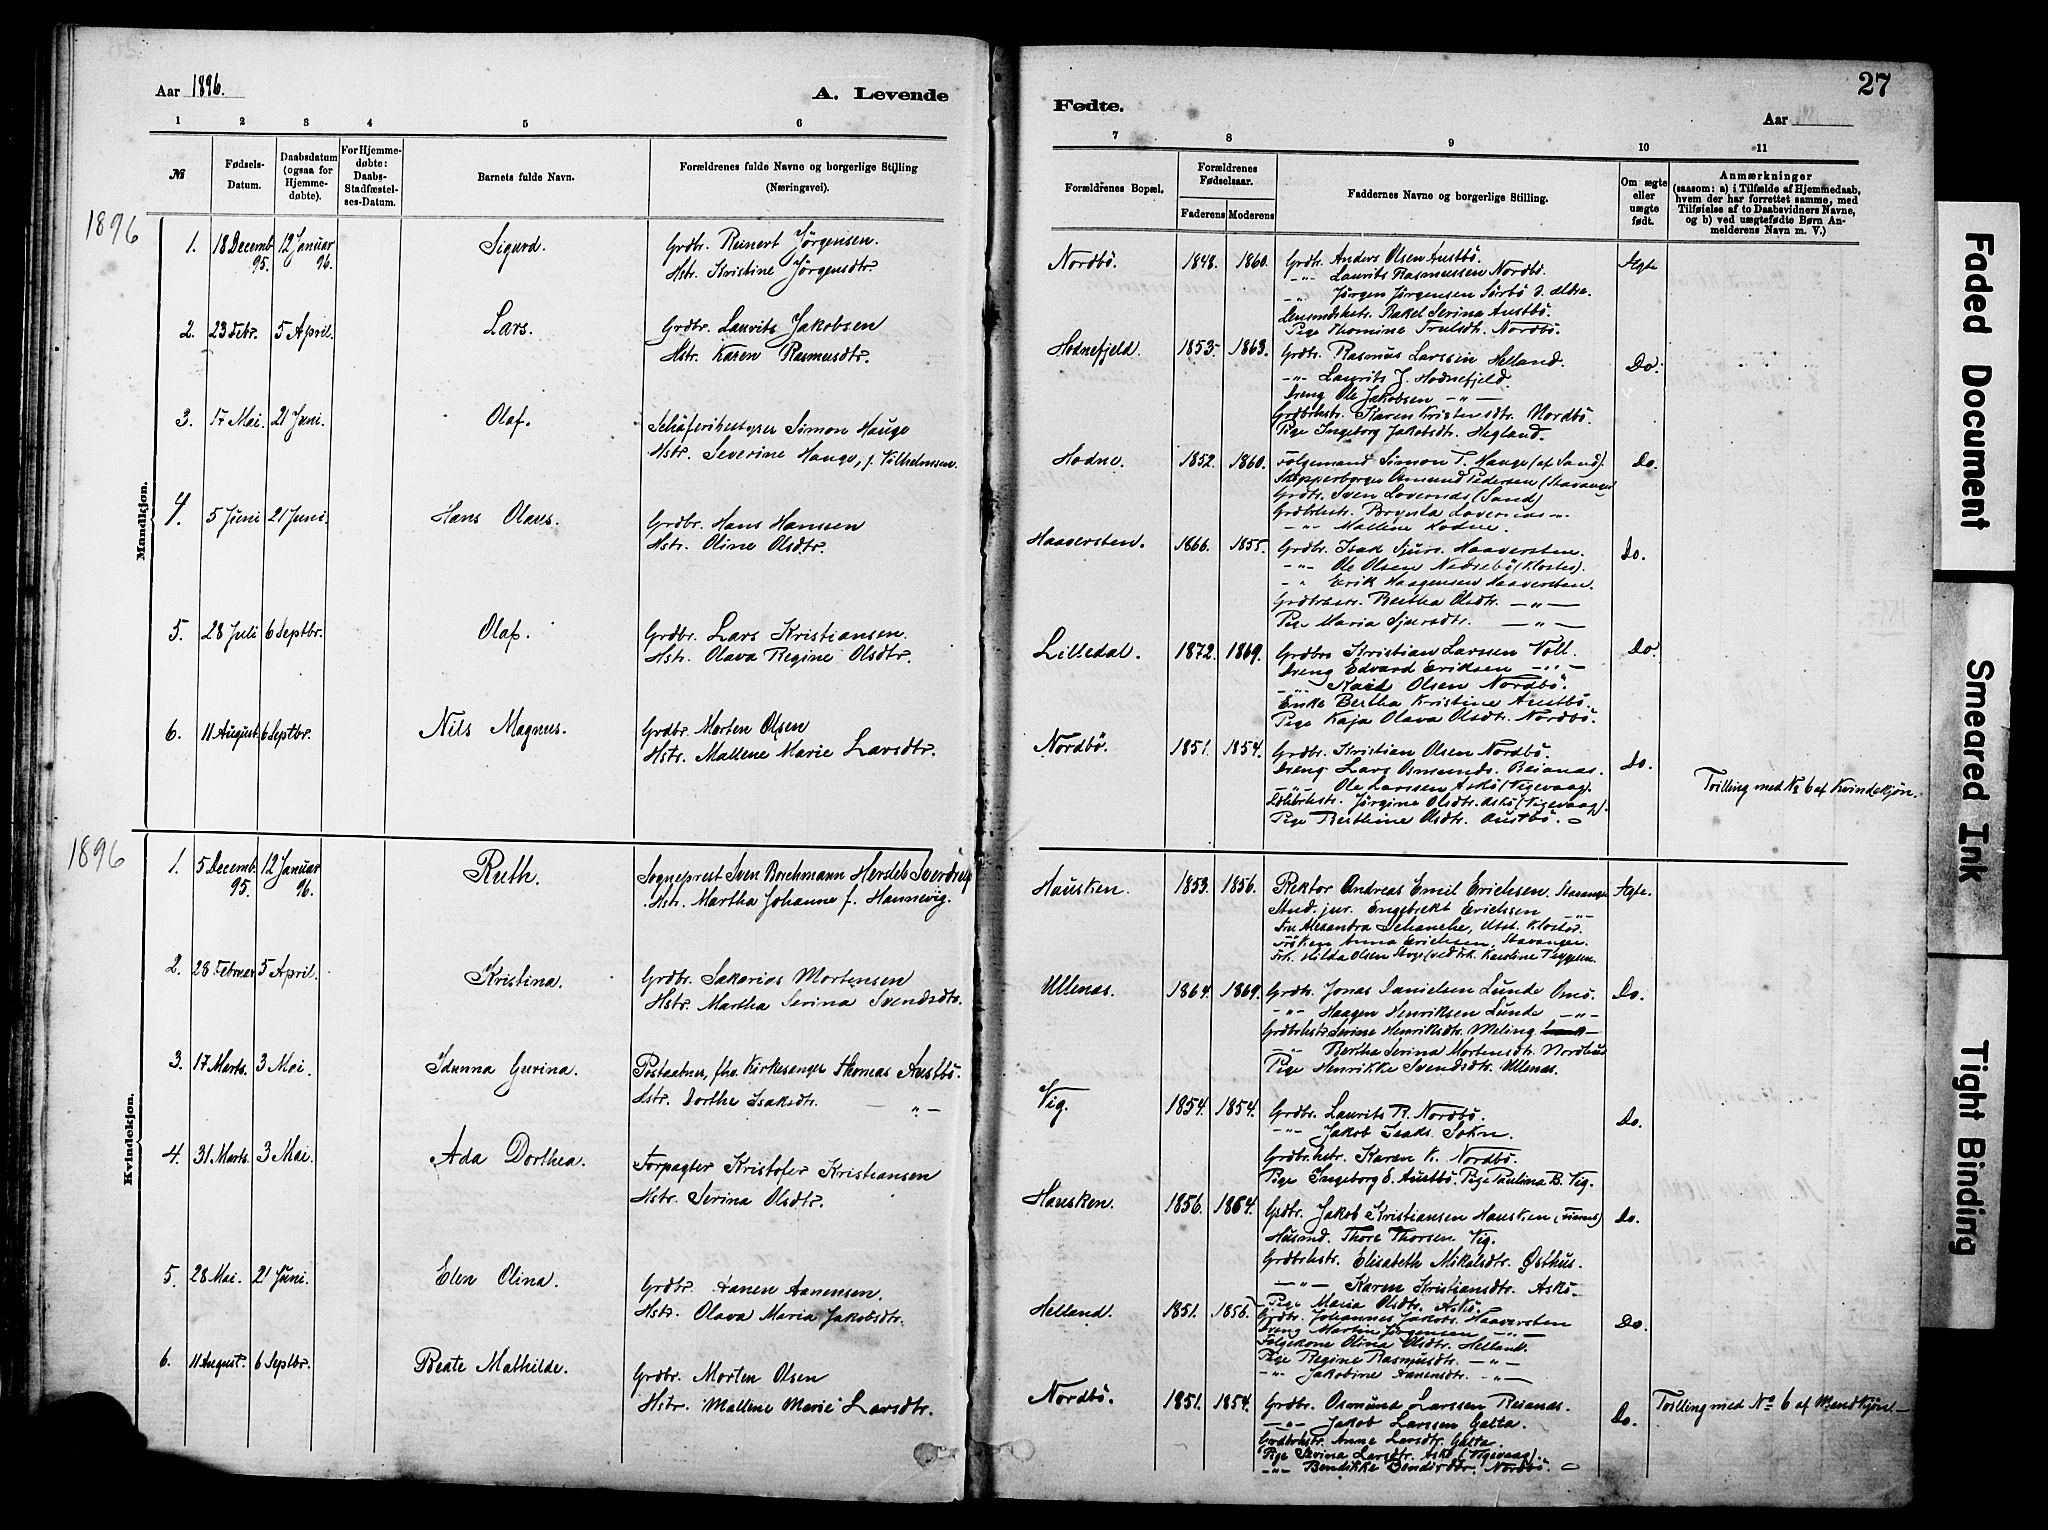 Aar 1896.
A. Levende
1 2 3 4 5 6
№
Fødsels-Datum.
Daabsdatum (ogsaa for Hjemmedøbte).
For Hjemmedøbte: Daabs-Stadfæstelses-Datum.
Barnets fulde Navn.
Forældrenes fulde Navne og borgerlige Stilling (Næringsvei).
1896
Mandkjøn.
1. 18 Decemb. 95. 12 Januar 96. Sigurd. Grdbr. Reinert Jørgensen.
Hstr. Kristine Jørgensdtr.
2. 23 Febr. 5 April. Lars. Grdbr. Laurits Jakobsen
Hstr. Karen Rasmusdtr.
3. 17 Mai. 21 Juni. Olaf. Schäferibestyrer Simon Hauge
Hstr. Severine Hauge, f. Vilhelmsen.
4. 5 Juni 21 Juni. Hans Olaus. Grdbr. Hans Hansen
Hstr. Oline Olsdtr.
5. 28 Juli 6 Septbr. Olaf. Grdbr. Lars Kristiansen.
Hstr. Olava Regine Olsdtr.
6. 11 August. 6 Septbr. Nils Magnus. Grdbr. Morten Olsen
Hstr. Mallene Marie Larsdtr.
1896
Kvindekjøn.
1. 5 Decemb. 95. 12 Januar 96. Ruth. Sogneprest Sven Borchmann Hersleb Sverdrup
Hstr. Martha Johanne f. Hannevig.
2. 28 Februar 5 April. Kristina. Grdbr. Sakarias Mortensen
Hstr. Martha Serina Svendsdtr.
3. 17 Marts. 3 Mai. Idunna Gurina. Postaabner, fhv. Kirkesanger Thomas Austbø.
Hstr. Dorthe Isaksdtr. — " —
4. 31 Marts. 3 Mai. Ada Dorthea. Forpagter Kristofer Kristiansen
Hstr. Serina Olsdtr.
5. 28 Mai. 21 Juni. Elen Olina. Grdbr. Aanen Aanensen.
Hstr. Olava Maria Jakobsdtr.
6. 11 August. 6 Septbr. Beate Mathilde. Grdbr. Morten Olsen
Hstr. Mallene Marie Larsdtr.
27
Fødte.
Aar
7 8 9 10 11
Forældrenes Bopæl.
Forældrenes Fødselsaar.
Faderens Moderens
Faddernes Navne og borgerlige Stilling.
Om ægte eller uægte født.
Anmærkninger
(saasom: a) i Tilfælde af Hjemmedaab, hvem der har forrettet samme, med Tilføielse af to Daabsvidners Navne, og b) ved uægtefødte Børn Anmelderens Navn m. V.)
Nordbø. 1848. 1860. Grdbr. Anders Olsen Austbø. Ægte
-"- Laurits Rasmussen Nordbø.
-"- Jørgen Jørgensen Sørbø d. ældre.
Lensmdshstr. Rakel Serina Austbø.
Pige Thomine Trulsdtr. Nordbø.
Hodnefjeld. 1853. 1863. Grdbr. Rasmus Larssen Helland. Do.
-"- Laurits J. Hodnefjeld.
Dreng Ole Jakobsen -"-
Grdbrhstr. Karen Kristensdtr. Nordbø.
Pige Ingeborg Jakobsdtr. Hegland.
Hodne. 1852. 1860. Følgemand Simon T. Hauge (af Sand). Do.
Skipperborger Osmund Pedersen (Stavanger
Grdbr. Sven Lovernds (Sand)
Grdbrhstr. Birgitta Lovernds -"-
-"- Mallene Hodne.
Haaversten. 1866. 1855. Grdbr. Isak Sjurs. Haaversten. Do.
-"- Ole Olsen Nådsebø (Kloster).
-"- Erik Haagensen Haaversten.
Grdbrhstr. Bertha Olsdtr. -"-
Pige Maria Sjursdtr. -"-
Lilledal. 1872. 1869. Grdbrs Kristian Larssen Voll. Do.
Dreng Edvard Eriksen -"-
-"- Karl Olsen Nordbø.
Enke Bertha Kristine Austbø.
Pige Kaja Olava Olsdtr. Nordbø.
Nordbø. 1851. 1854. Grdbr. Kristian Olsen Nordbø. Do. Tvilling med № 6 af Kvindekjøn.
Dreng Lars Osmunds. Reianas.
-"- Ole Larssen Askø (Vigevaag).
Jørgine Olsdtr. Askø (Vigevaag).
Pige Berthine Olsdtr. Austbø.
Hausken. 1853. 1856. Rektor Andreas Emil Erichsen. Stavanger Ægte.
Stud. jur. Engebrekt Erichsen -"-
Fru Alexandra Schanche, Utst. Kloster.
Frøken Anna Erichsen, Stavanger.
Frk. Hilda Olsen Stege (ved Frk. Karoline
Ullenas. 1864. 1869. Grdbr. Jonas Danielsen Lunde Omø. Do.
-"- Haagen Henriksen Lunde -"-
Grdbrhstr Serine Henriksdtr. Meling
-"- Bertha Serina Mortensdtr. Nordhus
Pige Henrikke Svendsdtr. Ullenas.
Vig. 1854. 1854. Grdbr. Laurits R. Nordbø. Do.
-"- Jakob Isaks. Sokn.
Grdbrhstr. Karen K. Nordbø.
Pige Ingeborg E. Austbø. Pige Paulina B. Vig.
Hausken. 1856. 1864. Grdbr. Jakob Kristiansen Hausken Do.
Husmd. Thore Thorsen Vig.
Grdbrhstr. Elisabeth Mikalsdtr. Østhus.
-"- Karen Kristiansdtr. Askø.
Pige Maria Olsdtr. Askø.
Helland. 1851. 1856. Grdbr. Johannes Jakobs. Haaversten Do.
Dreng Martin Jørgensen -"-
Følgekone Olina Olsdtr. Helland.
Pige Regine Rasmusdtr. -"-
-"- Jakobine Aanensdtr. -"-
Nordbø. 1851. 1854. Grdbr. Osmund Larssen Reianas. Do. Tvilling med No 6 af Mandkjøn.
-"- Jakob Larssen Galta.
Grdbrhstr. Anne Larsdtr. Galta.
Pige Serina Larsdtr. Askø (Vigevaag).
-"- Bendikke Nordbø.
Faded Document
Smeared Ink
Tight Binding